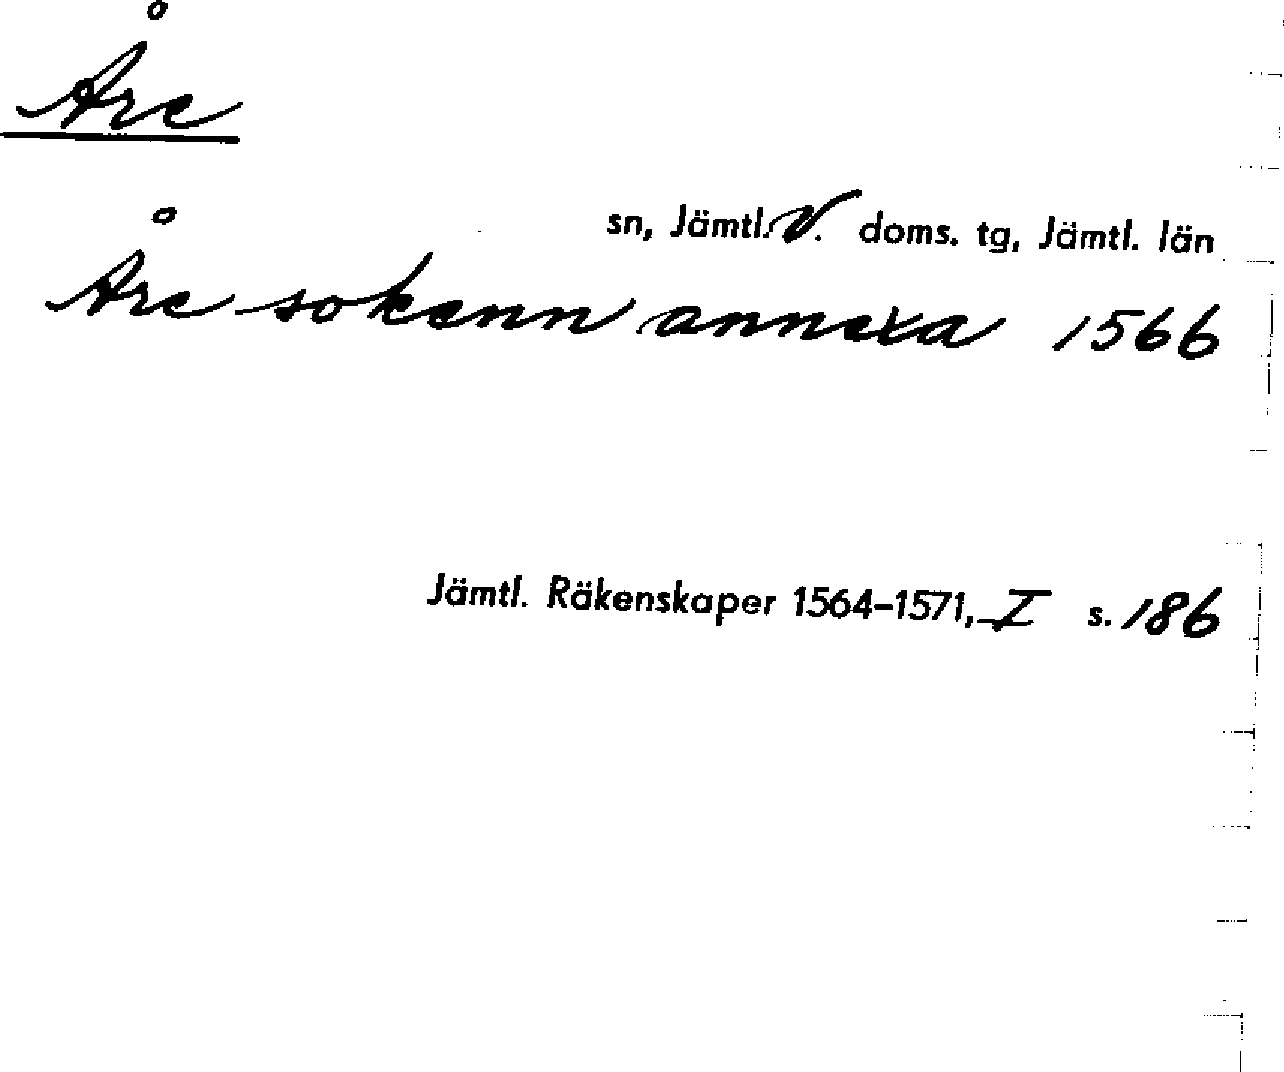 Åre
sn, Jämtl. V. doms. tg, Jämtl. län
Åre sokenn annexa 1566
Jämtl. Räkenskaper 1564-1571, I s. 186